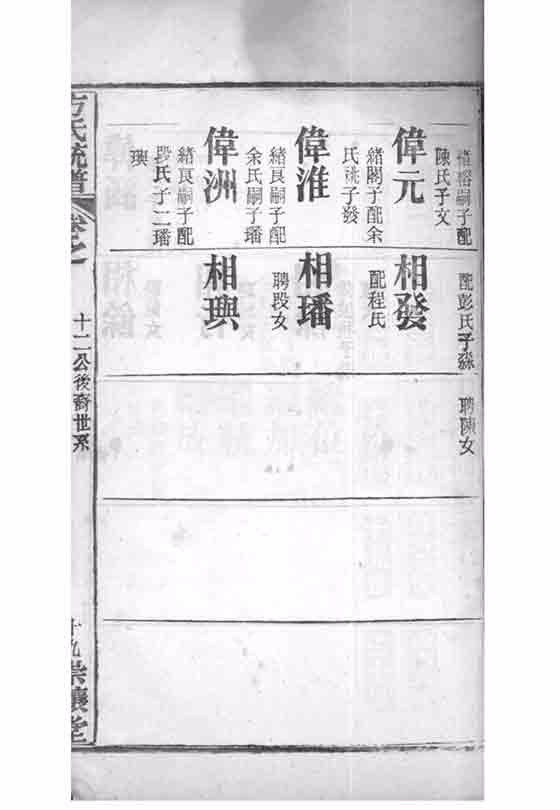 緒榕嗣子配
陳氏子文
偉元
緒閣子配余
氏祧子發
偉淮
緒良嗣子配
余氏嗣子璠
偉洲
緒良嗣子配
段氏子二璠
璵
配彭氏子淼
相發
配程氏
相璠
聘段女
相璵
聘陳女
方氏統譜
卷之
十二公後裔世系
十九
崇讓堂